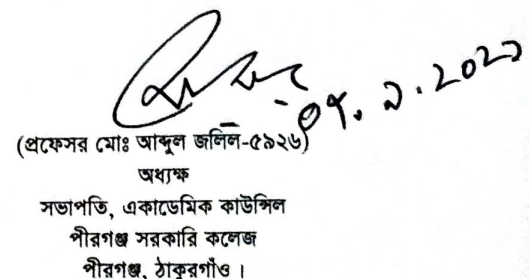 (প্রফেসর মোঃ আব্দুল জলিল-৫৯২৬)
অধ্যক্ষ
সভাপতি, একাডেমিক কাউন্সিল
পীরগঞ্জ সরকারি কলেজ
পীরগঞ্জ, ঠাকুরগাঁও ।